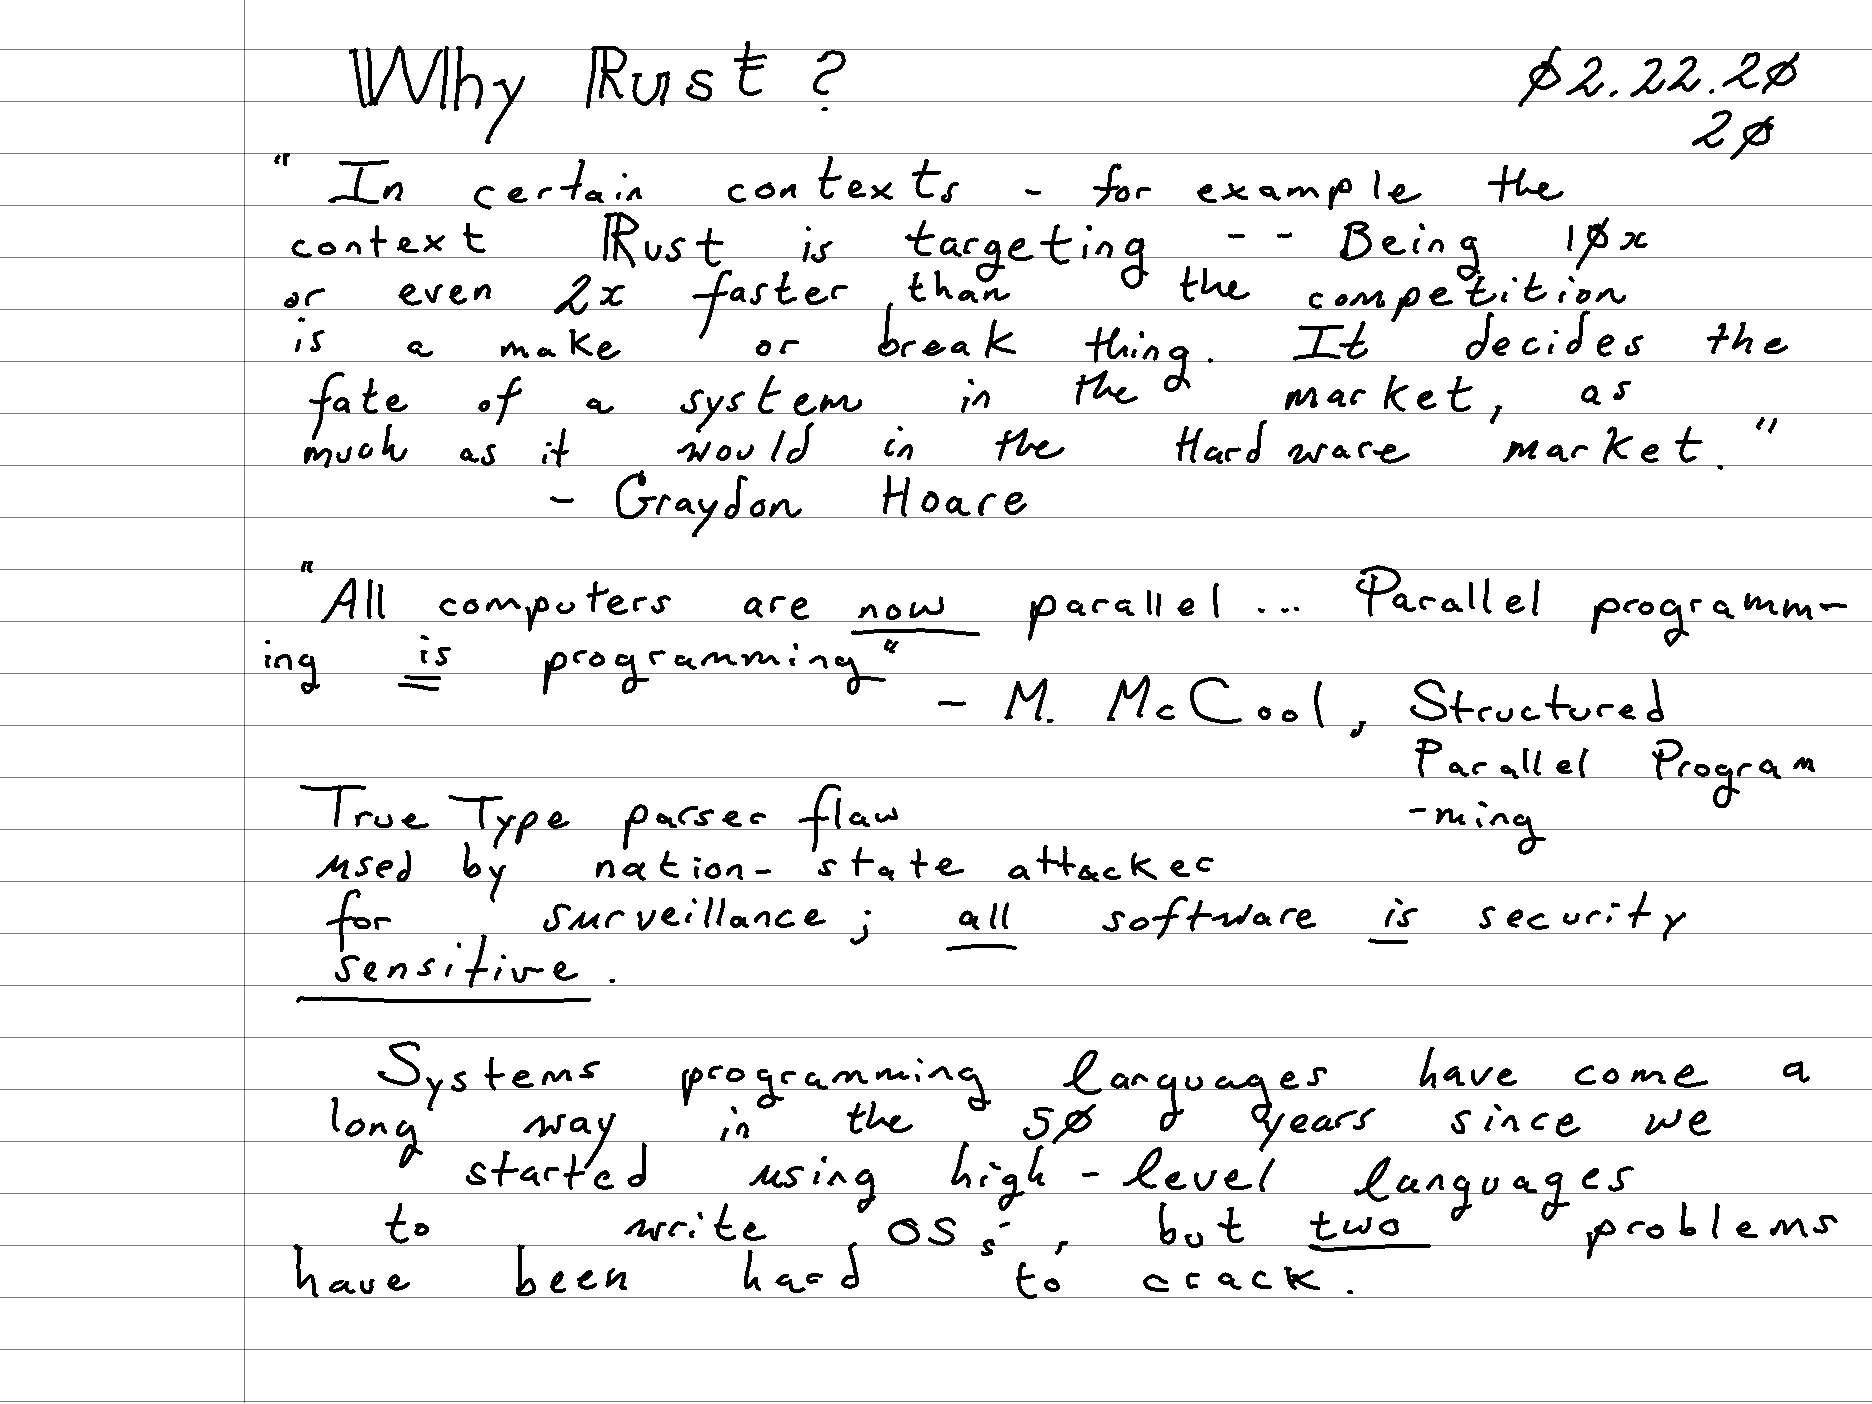 Why Rust?
02.22.20
20
"In certain contexts - for example the
context Rust is targeting -- Being 10x
or even 2x faster than the competition
is a make or break thing. It decides the
fate of a system in the market, as
much as it would in the Hardware market."
- Graydon Hoare
"All computers are now parallel... Parallel programm-
ing is programming"
- M. McCool, Structured
Parallel Program
-ming
True Type parser flaw
used by nation-state attacker
for surveillance; all software is security
sensitive.
Systems programming languages have come a
long way in the 50 years since we
started using high-level languages
to write OSs, but two problems
have been hard to crack.